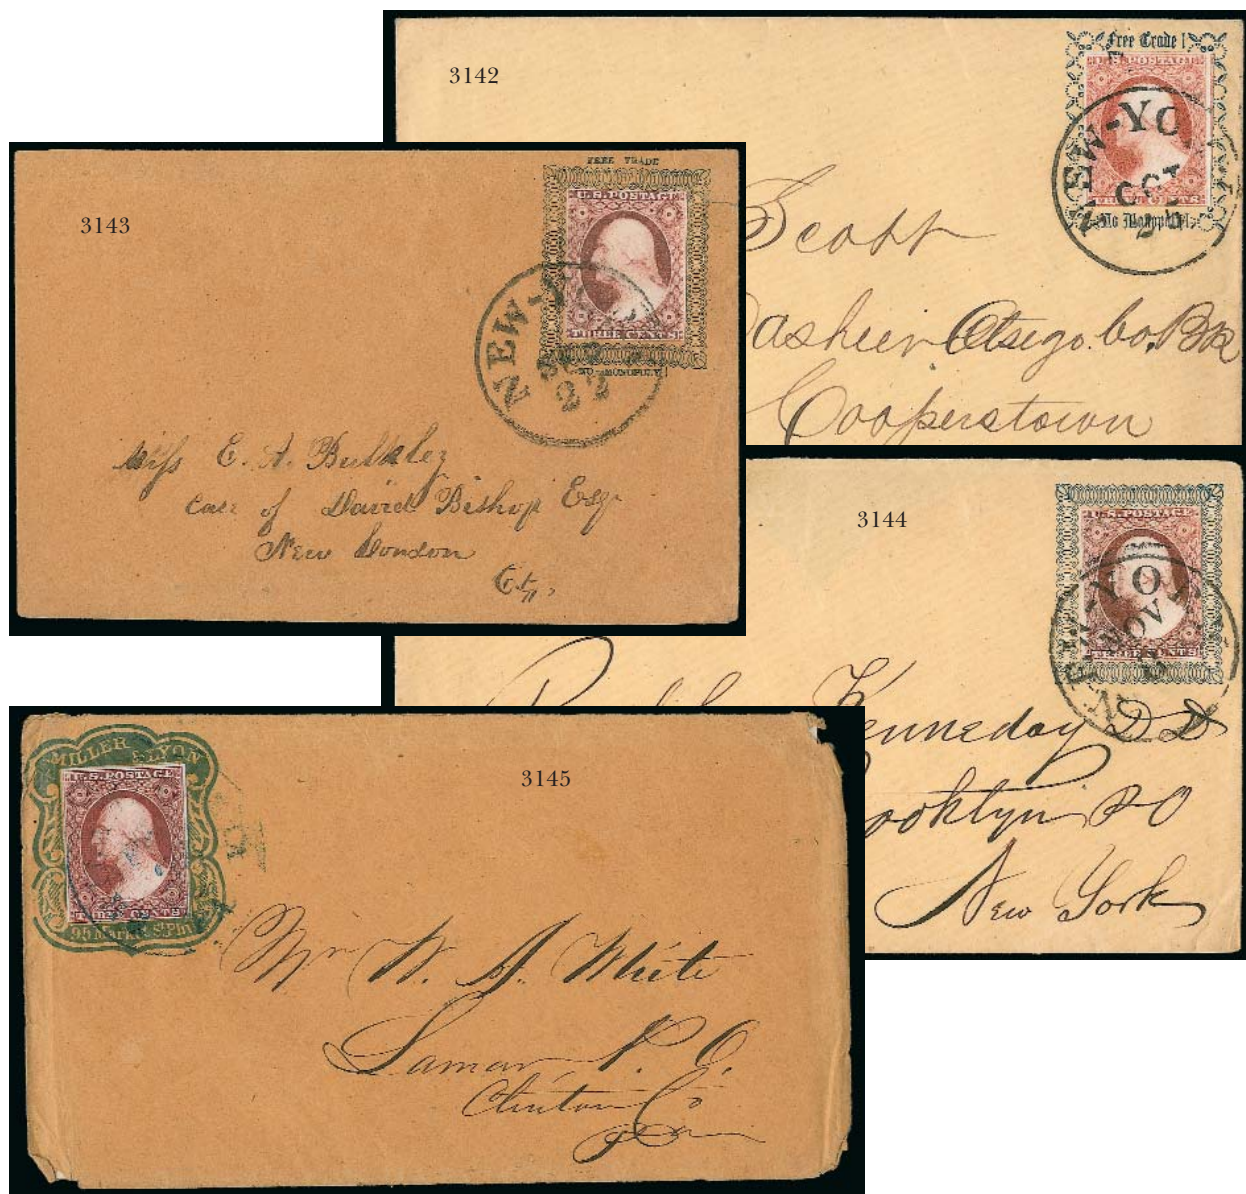 3142
Free Trade !
U.S. POSTAGE
NEW-YO
OCT
THREE CENTS
No Monopoly!
Scott
Cashier Otsego Co. Bk
Cooperstown
3143
FREE TRADE
U.S. POSTAGE
NEW-YO
22
THREE CENTS
NO MONOPOLY!
Miss E. A. Bulkley
Care of David Bishop Esqr
New London
Ct.,
3144
U.S. POSTAGE
NEW-YO
NOV
THREE CENTS
Kenneday D D
ooklyn P O
New York
3145
MILLER & LYON
U.S. POSTAGE
THREE CENTS
95 Market St. Phi
Mr W. A. White
Lamar P. O.
Clinton Co